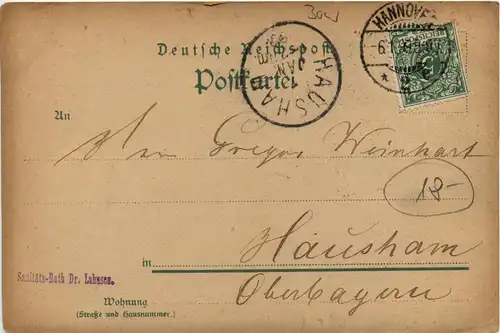 30W
HANNOVER
Deutsche Reichspost
Postkarte
HAUSHAM
JAN
An
Herrn Gregor Weinhart
18-
in Hausham
Sanitäts-Rath Dr. Lahusen.
Oberbayern
Wohnung
(Straße und Hausnummer.)